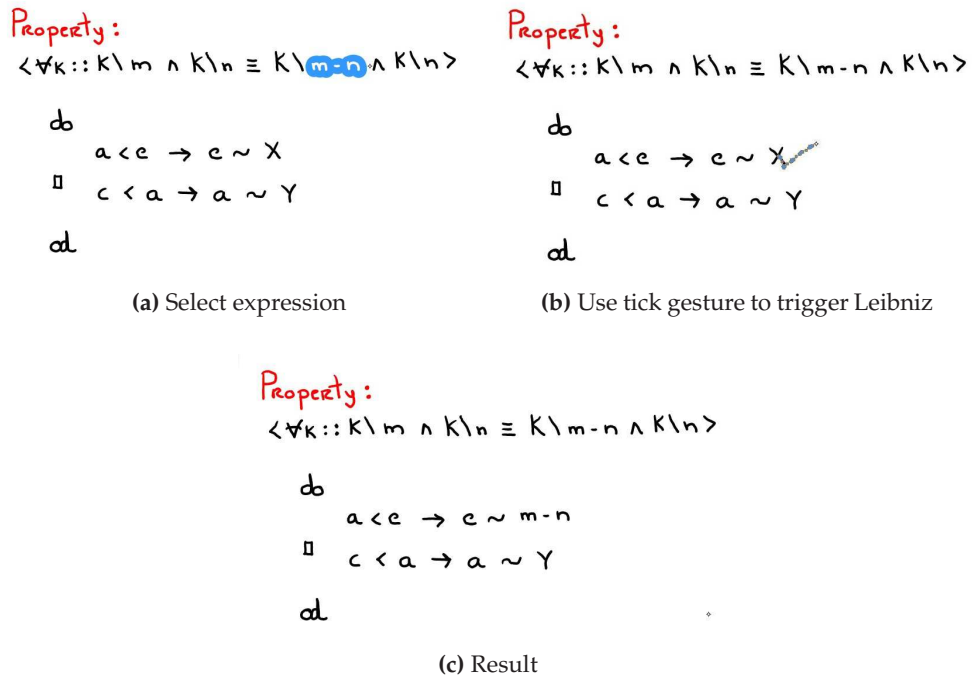 Property:
<∀k:: k\m ∧ k\n ≡ k\m-n ∧ k\n>
do
a<c → c ~ X
▯ c < a → a ~ Y
od
(a) Select expression
Property:
<∀k:: k\m ∧ k\n ≡ k\m-n ∧ k\n>
do
a<c → c ~ X
▯ c < a → a ~ Y
od
(b) Use tick gesture to trigger Leibniz
Property:
<∀k:: k\m ∧ k\n ≡ k\m-n ∧ k\n>
do
a<c → c ~ m-n
▯ c < a → a ~ Y
od
(c) Result